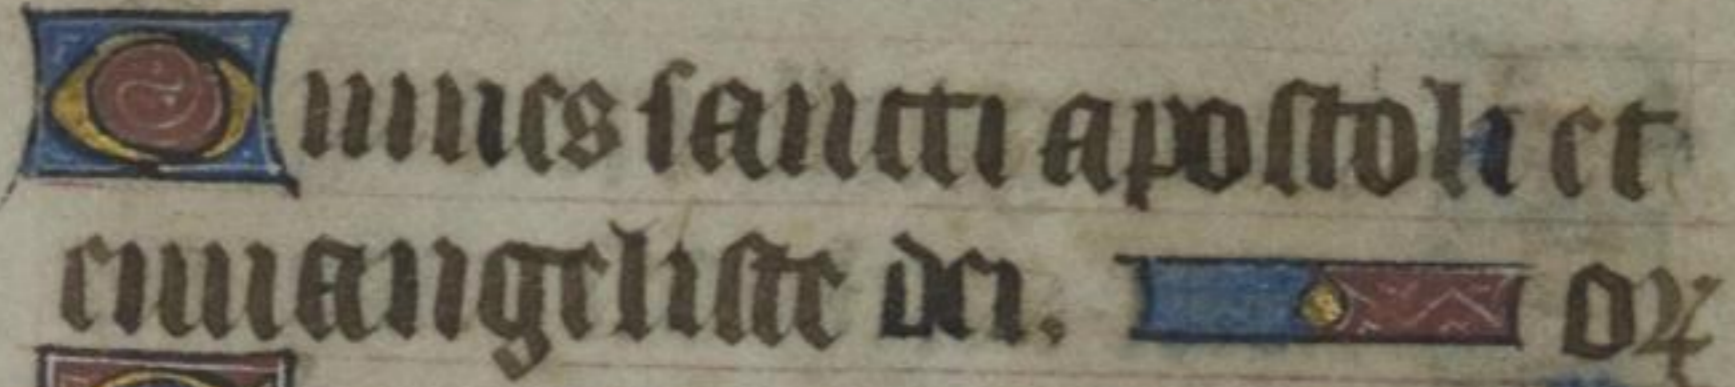 Omnes sancti apostoli et
euuangeliste dei. oꝝ